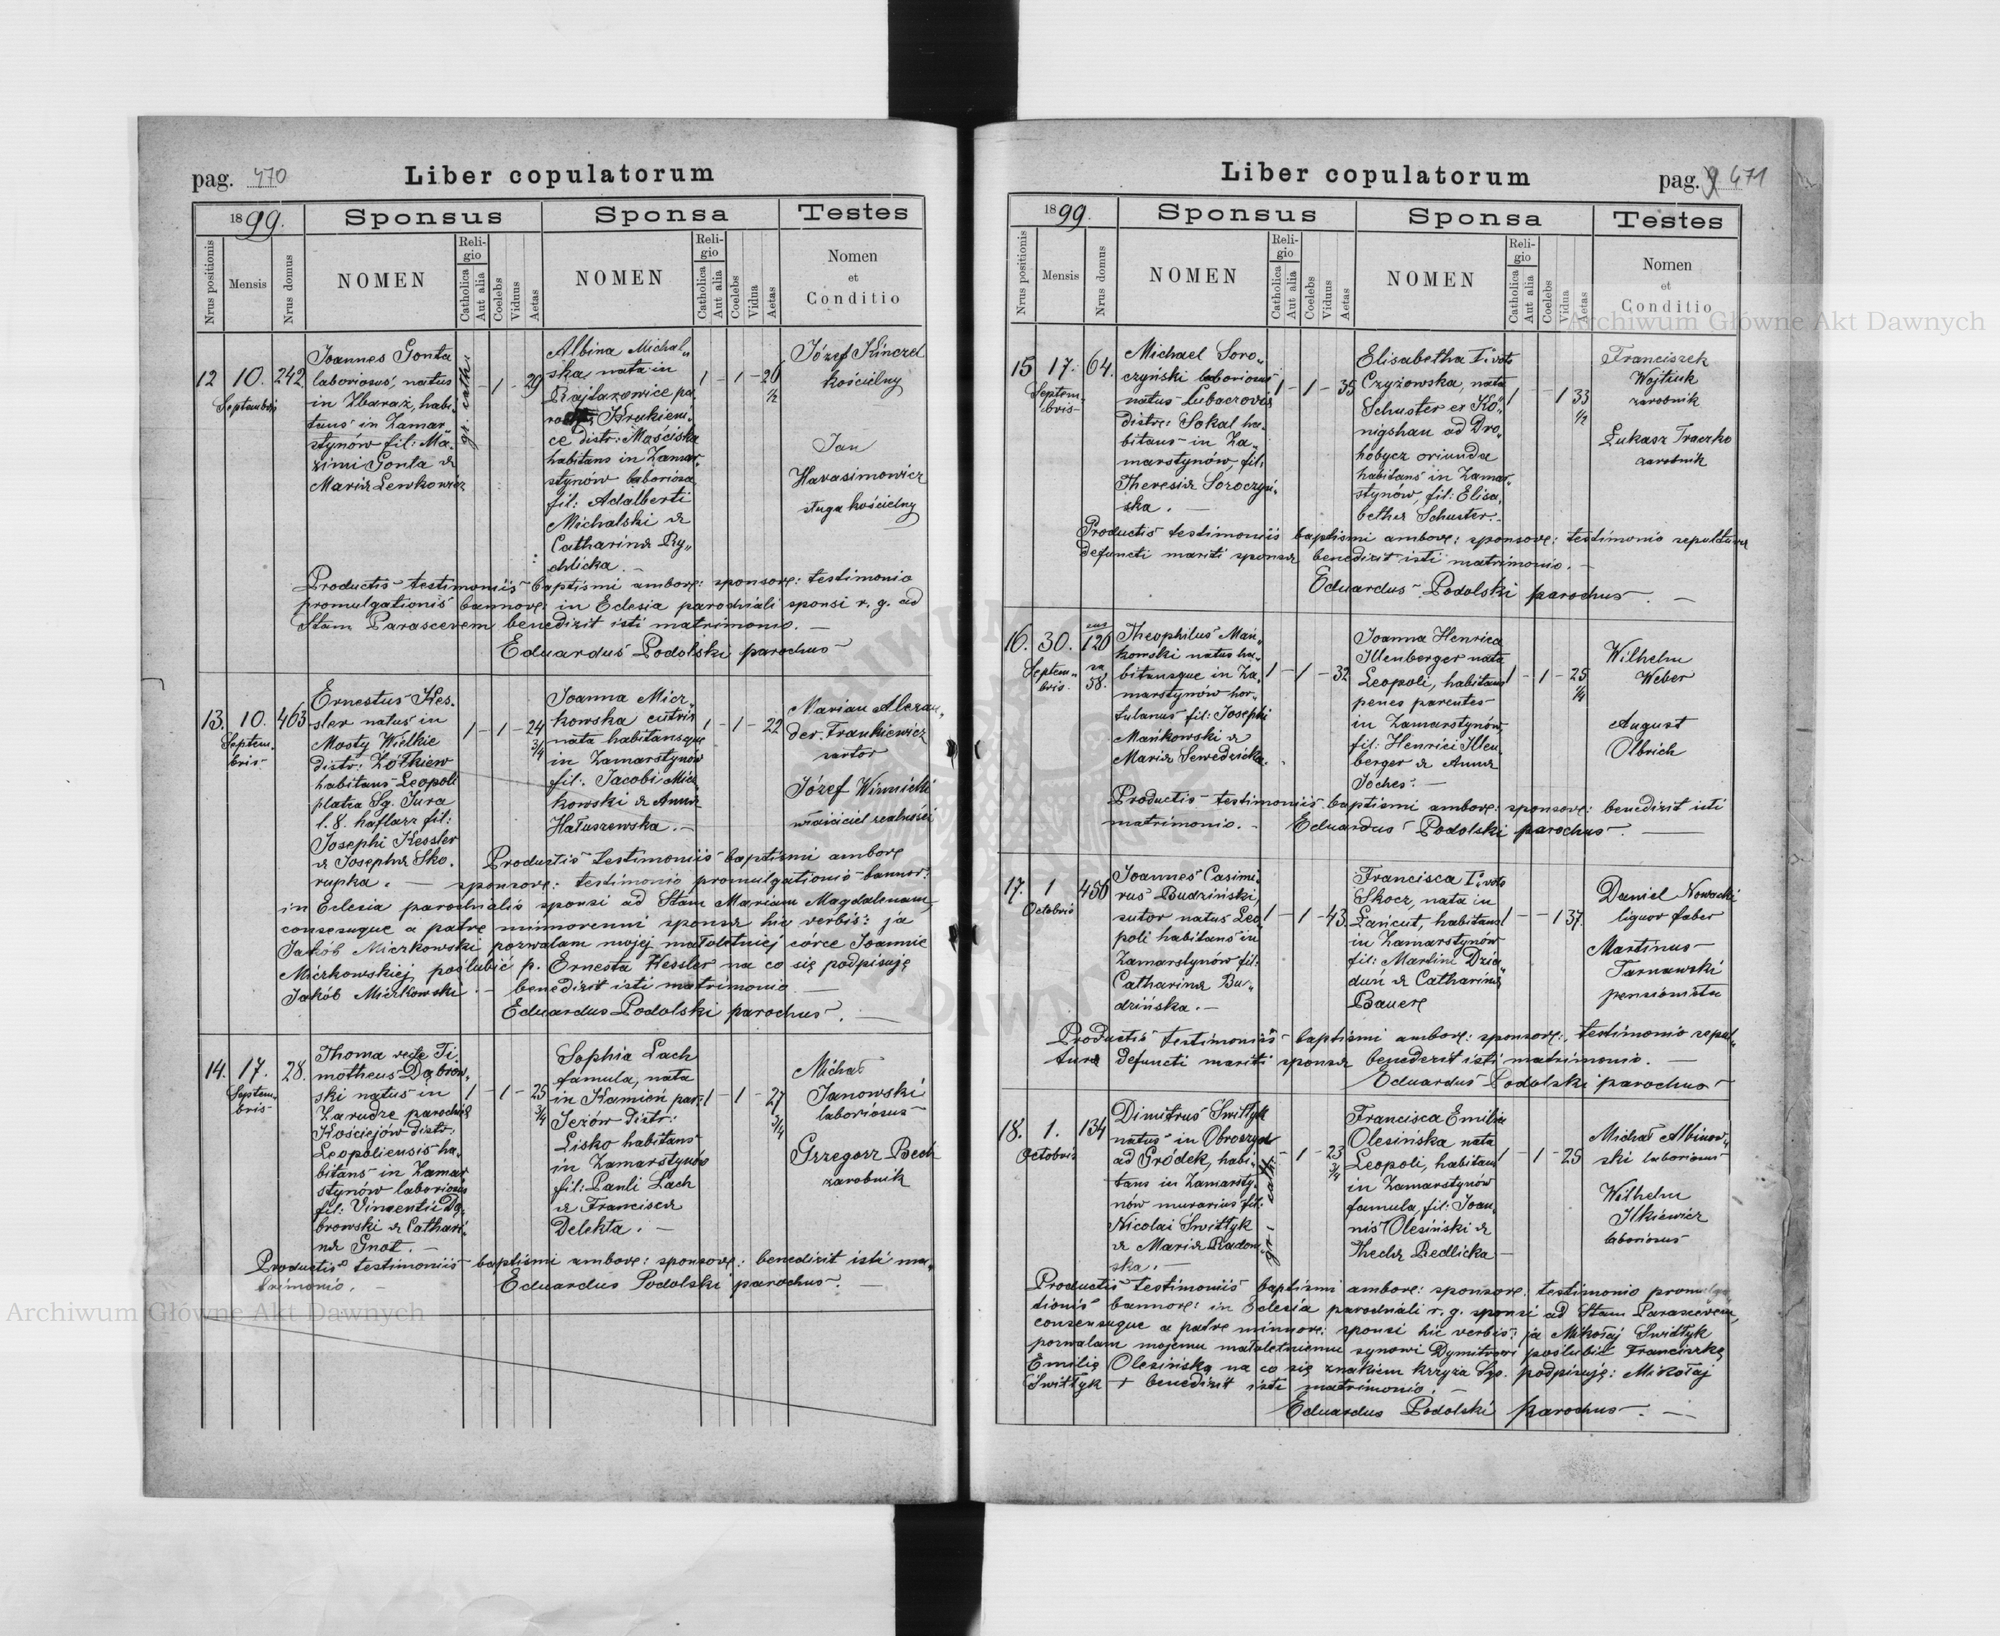 pag. 470
Liber copulatorum
1899.
Sponsus
Sponsa
Testes
Nrus positionis
Mensis
Nrus domus
NOMEN
Religio
Catholica
Aut alia
Coelebs
Viduus
Aetas
NOMEN
Religio
Catholica
Aut alia
Coelebs
Vidua
Aetas
Nomen
et
Conditio
12
10.
Septembris
242
Joannes Gonta
laboriosus, natus
in Zbaraż, habi-
tans in Zamar
stynów fil: Ma-
ximi Gonta &
Maria Lewkowicz
gr. cath
- 1 - 29
Albina Michal„
ska, nata in
Rajtarowice pa
roch. Krukieni„
ce distr: Mościska
habitans in Zamar„
stynów laboriosa
fil: Adalberti
Michalski &
Catharina Ry„
chlicka. -
1 - 1 - 26
1/2
Józef Kinczel
kościelny
Jan
Harasimowicz
sługa kościelny
Productis testimoniis baptismi ambor: sponsor: testimonio
promulgationis bannor: in Eclesia parochiali sponsi r. g. ad
Stam Parascevem benedixit isti matrimonio. -
Eduardus Podolski parochus
13.
10.
Septem-
bris
463
Ernestus Kes-
sler natus in
Mosty Wielkie
distr: Żółkiew
habitans Leopoli
platea Sg. Jura
l. 8. haftarz fil:
Josephi Kessler
& Josepha Sko.
rupka. -
1 - 1 - 24
3/4
Joanna Micz„
kowska cutrix
nata habitansque
in Zamarstynów
fil: Jacobi Micz„
kowski & Anna
Hałuszewska. -
1 - 1 - 22
Marian Alexan„
der. Frankiewicz
sartor
Józef Winnicki
właściciel realności
Productis testimoniis baptismi ambore
sponsore: testimonio promulgationis bannor:
in Eclesia parochialis sponsi ad Stam Mariam Magdalenam,
consensuque a patre minorenni sponsa hic verbis: ja
Jakób Miczkowski pozwalam mojej małoletniej córce Joannie
Miczkowskiej poślubić p. Ernesta Kessler na co się podpisuję
Jakób Miczkowski. - benedixit isti matrimonio -
Eduardus Podolski parochus. -
14.
17.
Septem-
bris
28.
Thoma recte Ti.
motheus Dąbrow„
ski natus in
Zarudze parochia
Kościejów distr.
Leopoliensis ha„
bitans in Zamar
stynów laboriosus
fil: Vincentii Dą.
browski & Cathari„
na Gnot. -
1 - 1 - 25
3/4
Sophia Lach
famula, nata
in Kamień par:
Jeżów distr:
Lisko habitans
in Zamarstynów
fil: Pauli Lach
& Francisca
Delekta. -
1 - 1 - 27
3/4
Michał
Janowski
laboriosus
Grzegorz Bech
zarobnik
Productis testimoniis baptismi ambor: sponsor: benedixit isti ma„
trimonio. -
Eduardus Podolski parochus. -
Archiwum Główne Akt Dawnych
pag. 471
Liber copulatorum
1899.
Sponsus
Sponsa
Testes
Nrus positionis
Mensis
Nrus domus
NOMEN
Religio
Catholica
Aut alia
Coelebs
Viduus
Aetas
NOMEN
Religio
Catholica
Aut alia
Coelebs
Vidua
Aetas
Nomen
et
Conditio
Archiwum Główne Akt Dawnych
15
17.
Septem-
bris
64.
Michael Soro„
czyński laboriosus
natus Lubaczovia
distr: Sokal ha„
bitans in Za„
marstynów, fil:
Theresia Soroczyń„
ska. -
1 - 1 - 35
Elisabetha Io voto
Czyżowska, nata
Schuster ex Kö„
nigshau ad Dro„
hobycz oriunda
habitans in Zamar„
stynów, fil: Elisa„
betha Schuster. -
1 - - 1 33
1/2
Franciszek
Wojtiuk
zarobnik
Łukasz Traczko
zarobnik
Productis testimoniis baptismi ambore: sponsore: testimonio sepultura
defuncti mariti sponsa benedixit isti matrimonio. -
Eduardus Podolski parochus. -
16.
30.
Septem„
bris.
120
58.
Theophilus Mań„
kowski natus ha„
bitansque in Za„
marstynów hor„
tulanus fil: Josephi
Mańkowski &
Maria Sewedzicka. -
1 - 1 - 32
Joanna Henrica
Illenberger nata
Leopoli, habitans
penes parentes
in Zamarstynów,
fil: Henrici Illen„
berger & Anna
Joches. -
1 - 1 - 25
1/4
Wilhelm
Weber
August
Olbrich
Productis testimoniis baptismi ambore: sponsore: benedixit isti
matrimonio. - Eduardus Podolski parochus. -
17.
1
Octobris
456
Joannes Casimi„
rus Budziński,
sutor natus Leo„
poli habitans in
Zamarstynów fil:
Catharina Bu„
dzińska. -
1 - 1 - 43.
Francisca Io voto
Skocz, nata in
Łańcut, habitans
in Zamarstynów
fil: Martini Dzia„
duń & Catharina
Bauer
1 - - 1 37.
Daniel Nowacki
liquor faber
Martinus
Tarnawski
pensionista
Productis testimoniis baptismi ambore: sponsore: testimonio sepul„
tura defuncti mariti sponsa benedixit isti matrimonio. -
Eduardus Podolski parochus
18.
1.
Octobris
134
Dimitrus Switłyk
natus in Obroszyn
ad Gródek, habi„
tans in Zamarsty„
nów murarius fil:
Nicolai Switłyk
& Maria Radom„
ska. -
gr - cath.
- 1 - 23
3/4
Francisca Emilia
Olesińska nata
Leopoli, habitans
in Zamarstynów
famula, fil: Joan„
nis Olesiński &
Thecla Redlicka -
1 - 1 - 25
Michał Albinow„
ski laboriosus
Wilhelm
Ilkiewicz
laboriosus
Productis testimoniis baptismi ambore: sponsore: testimonio promulga„
tionis bannore: in Eclesia parochiali r. g. sponsi ad Stam Parascevem,
consensuque a patre minore: sponsi hic verbis: ja Mikołaj Switłyk
pozwalam mojemu małoletniemu synowi Dymitrowi poślubić Franciszkę
Emilię Olesińską na co się znakiem krzyża Sgo. podpisuję: Mikołaj
Switłyk + benedixit isti matrimonio. -
Eduardus Podolski parochus. -